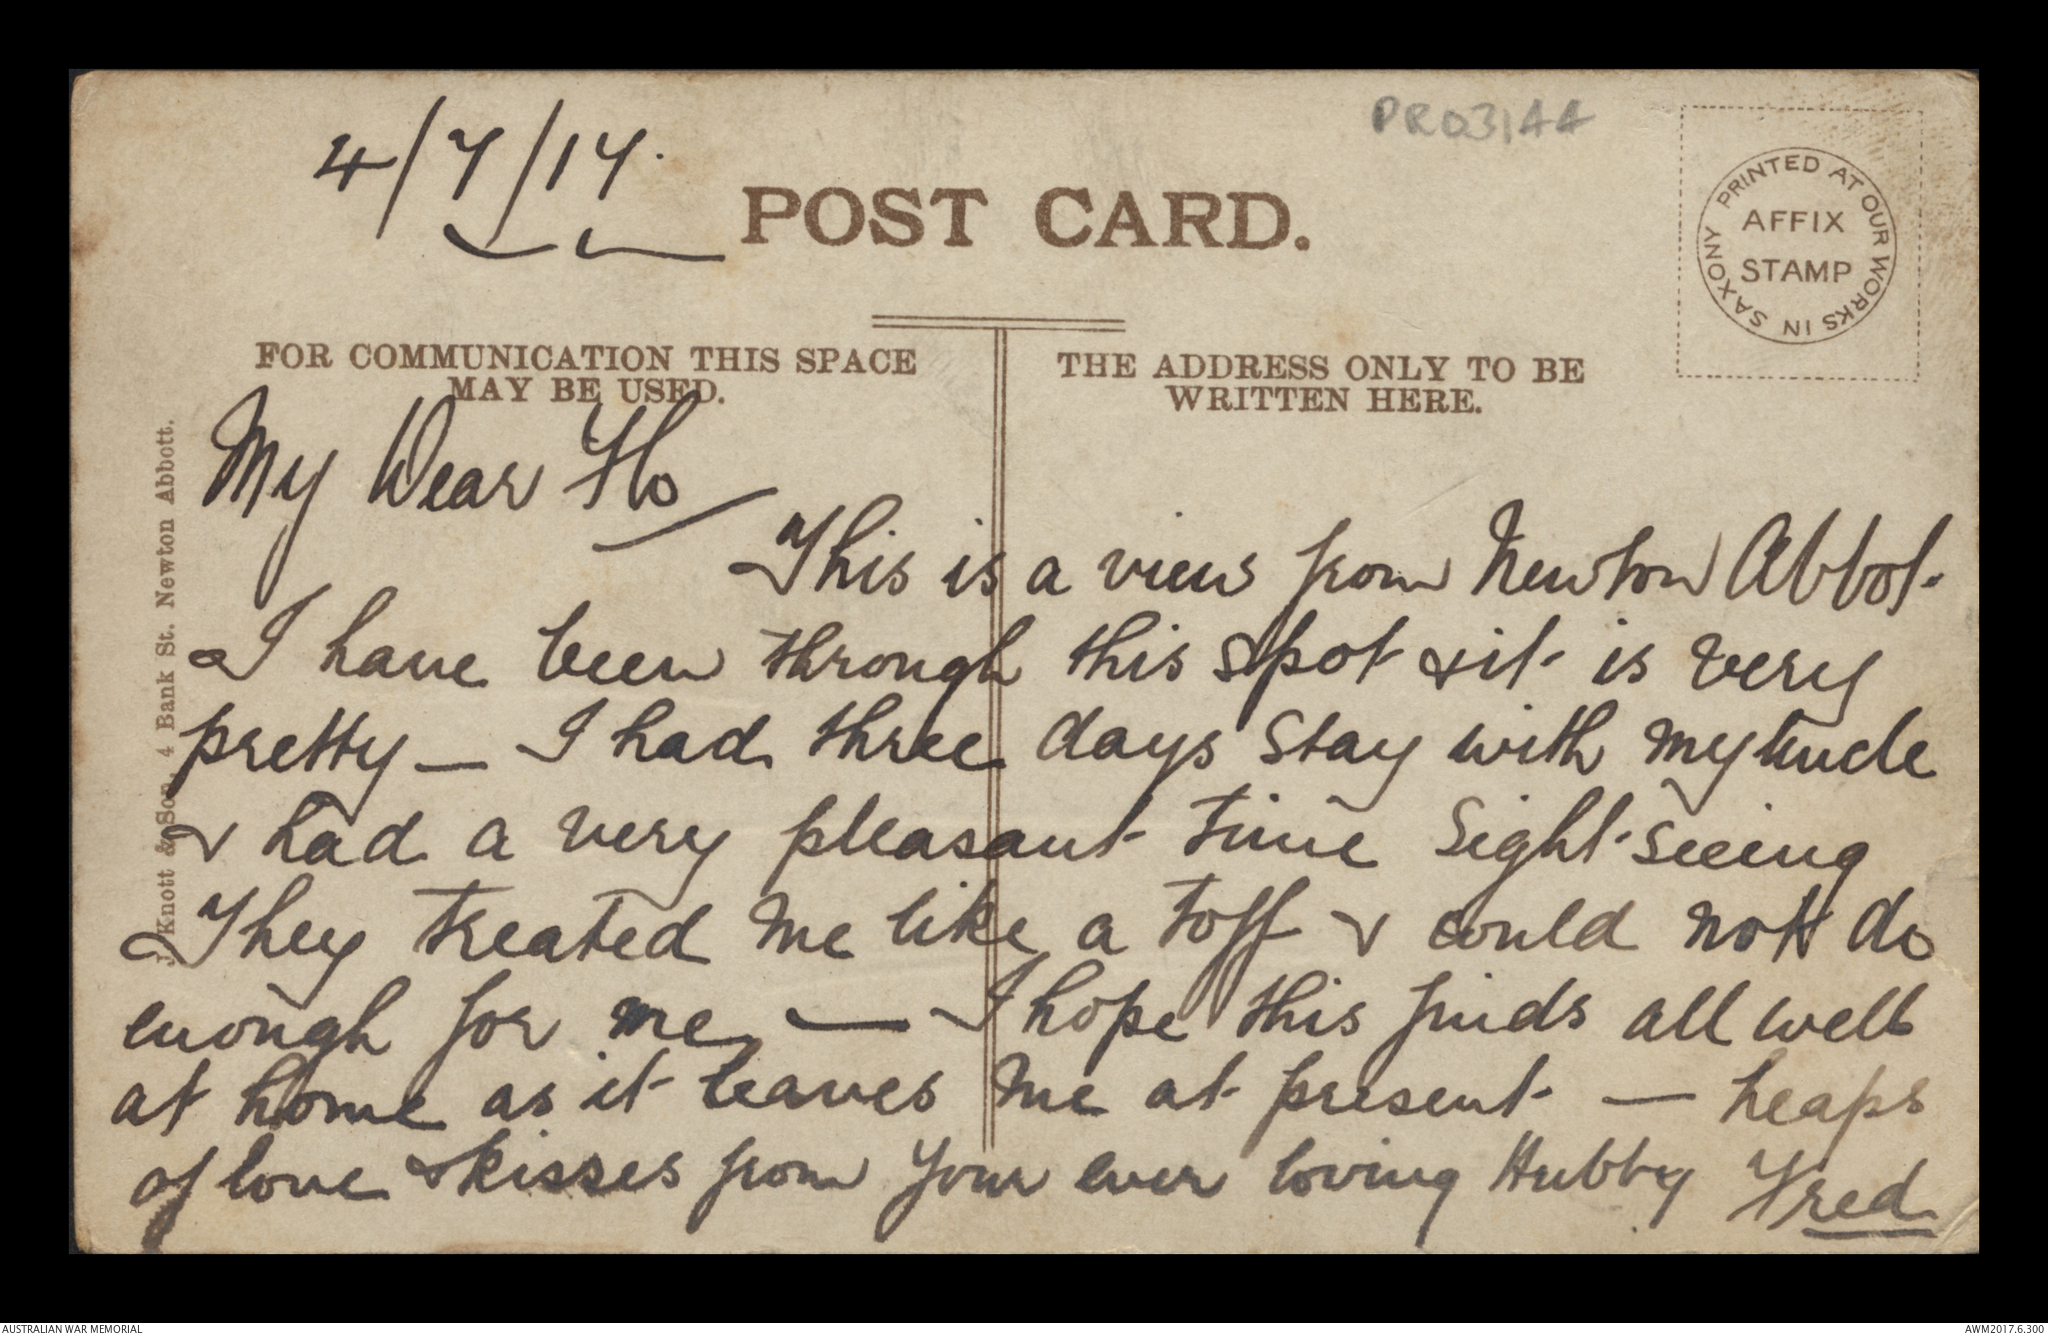 4/7/17.
PR03144
POST CARD.
PRINTED AT OUR WORKS IN SAXONY
AFFIX
STAMP
FOR COMMUNICATION THIS SPACE
MAY BE USED.
THE ADDRESS ONLY TO BE
WRITTEN HERE.
J. Knott & Son, 4 Bank St. Newton Abbott.
My Dear Flo
This is a view from Newton Abbot
I have been through this spot & it is very
pretty — I had three days stay with my Uncle
& had a very pleasant time sight-seeing
They treated me like a toff & could not do
enough for me — I hope this finds all well
at home as it leaves me at present — heaps
of love & kisses from your ever loving Hubby Fred
AUSTRALIAN WAR MEMORIAL
AWM2017.6.300